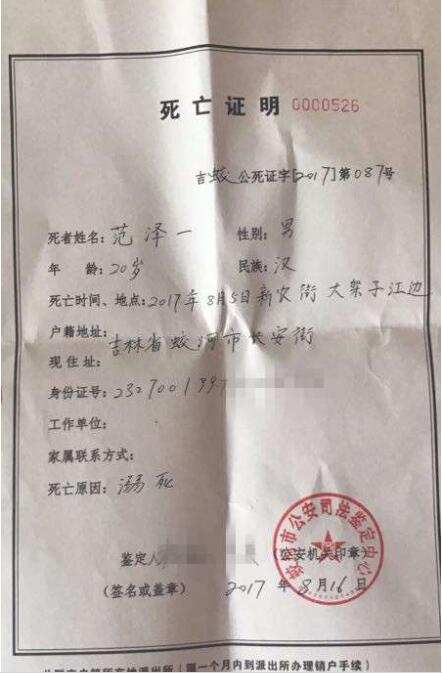 死亡证明 0000526
吉蛟公死证字[2017]第087号
死者姓名：范泽一 性别：男
年 龄：20岁 民族：汉
死亡时间、地点：2017年8月5日新农街大架子江边
户籍地址：
吉林省蛟河市长安街
现住址：
身份证号：2327001997
工作单位：
家属联系方式：
死亡原因：溺死
鉴定人 （公安机关印章）
（签名或盖章） 2017年8月16日
蛟河市公安司法鉴定中心
一个月内到派出所办理销户手续）